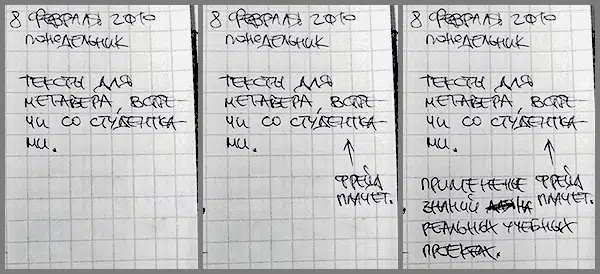 8 ФЕВРАЛЯ 2010
ПОНЕДЕЛЬНИК
ТЕКСТЫ ДЛЯ
МЕТАВЕРА, ВСТРЕ-
ЧИ СО СТУДЕНТКА-
МИ.
8 ФЕВРАЛЯ 2010
ПОНЕДЕЛЬНИК
ТЕКСТЫ ДЛЯ
МЕТАВЕРА, ВСТРЕ-
ЧИ СО СТУДЕНТКА-
МИ.
ФРЕЙД
ПЛАЧЕТ.
8 ФЕВРАЛЯ 2010
ПОНЕДЕЛЬНИК
ТЕКСТЫ ДЛЯ
МЕТАВЕРА, ВСТРЕ-
ЧИ СО СТУДЕНТКА-
МИ.
ФРЕЙД
ПЛАЧЕТ.
ПРИМЕНЕНИЕ
ЗНАНИЙ НА
РЕАЛЬНЫХ УЧЕБНЫХ
ПРОЕКТАХ.